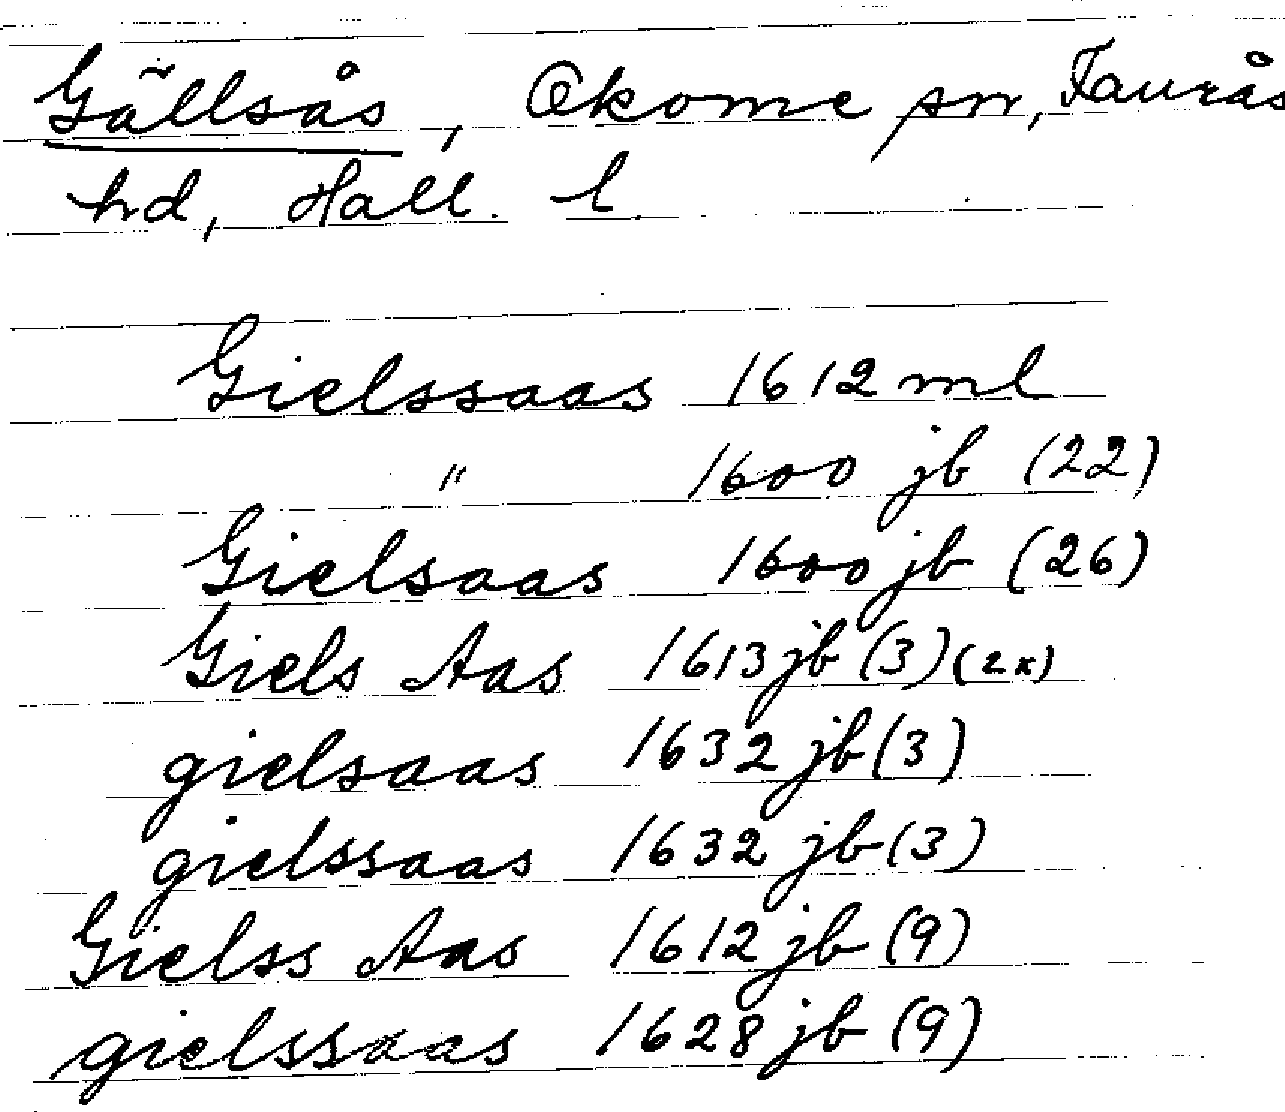 Gällsås, Okome sn, Faurås
hd, Hall. l.
Gielssaas 1612 ml
" 1600 jb (22)
Gielsaas 1600 jb (26)
Giels Aas 1613 jb (3) (2x)
gielsaas 1632 jb (3)
gielssaas 1632 jb (3)
Gielss Aas 1612 jb (9)
gielssaas 1628 jb (9)